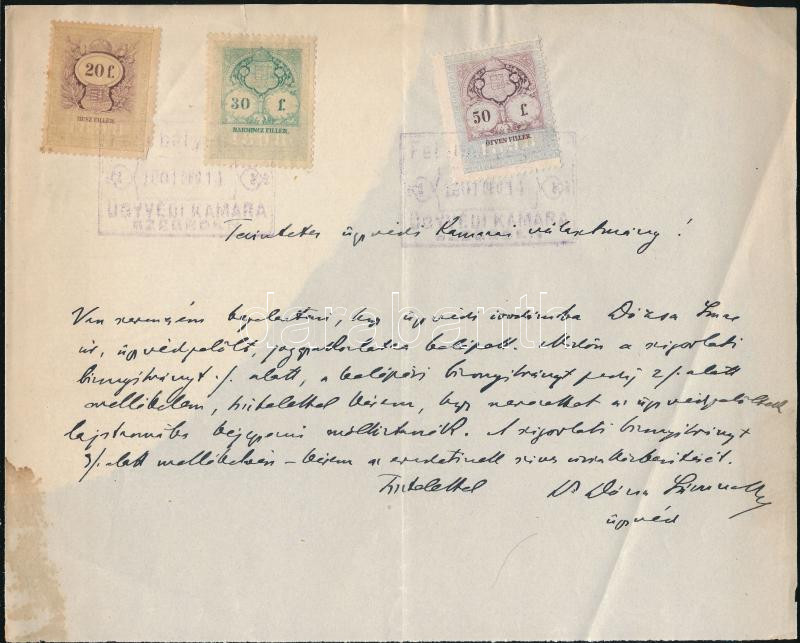 20 f.
HUSZ FILLÉR
30 f.
HARMINCZ FILLÉR.
50 f.
ÖTVEN FILLÉR
ÜGYVÉDI KAMARA
SZEGED
ÜGYVÉDI KAMARA
Tekintetes ügyvédi Kamarai választmány!
Van szerencsém bejelenteni, hogy ügyvédi irodámba Dózsa Imre
úr, ügyvédjelölt, joggyakorlatra belépett. Midőn a szigorlati
bizonyítványt ./. alatt, a belépési bizonyítványt pedig 2/. alatt
mellékelem, tisztelettel kérem, hogy nevezettet az ügyvédjelöltek
lajstromába bejegyezni méltóztassék. A szigorlati bizonyítványt
3/. alatt mellékelve – kérem az eredetinek szives visszaküldését.
Tisztelettel Dr Dózsa
ügyvéd
darabanth